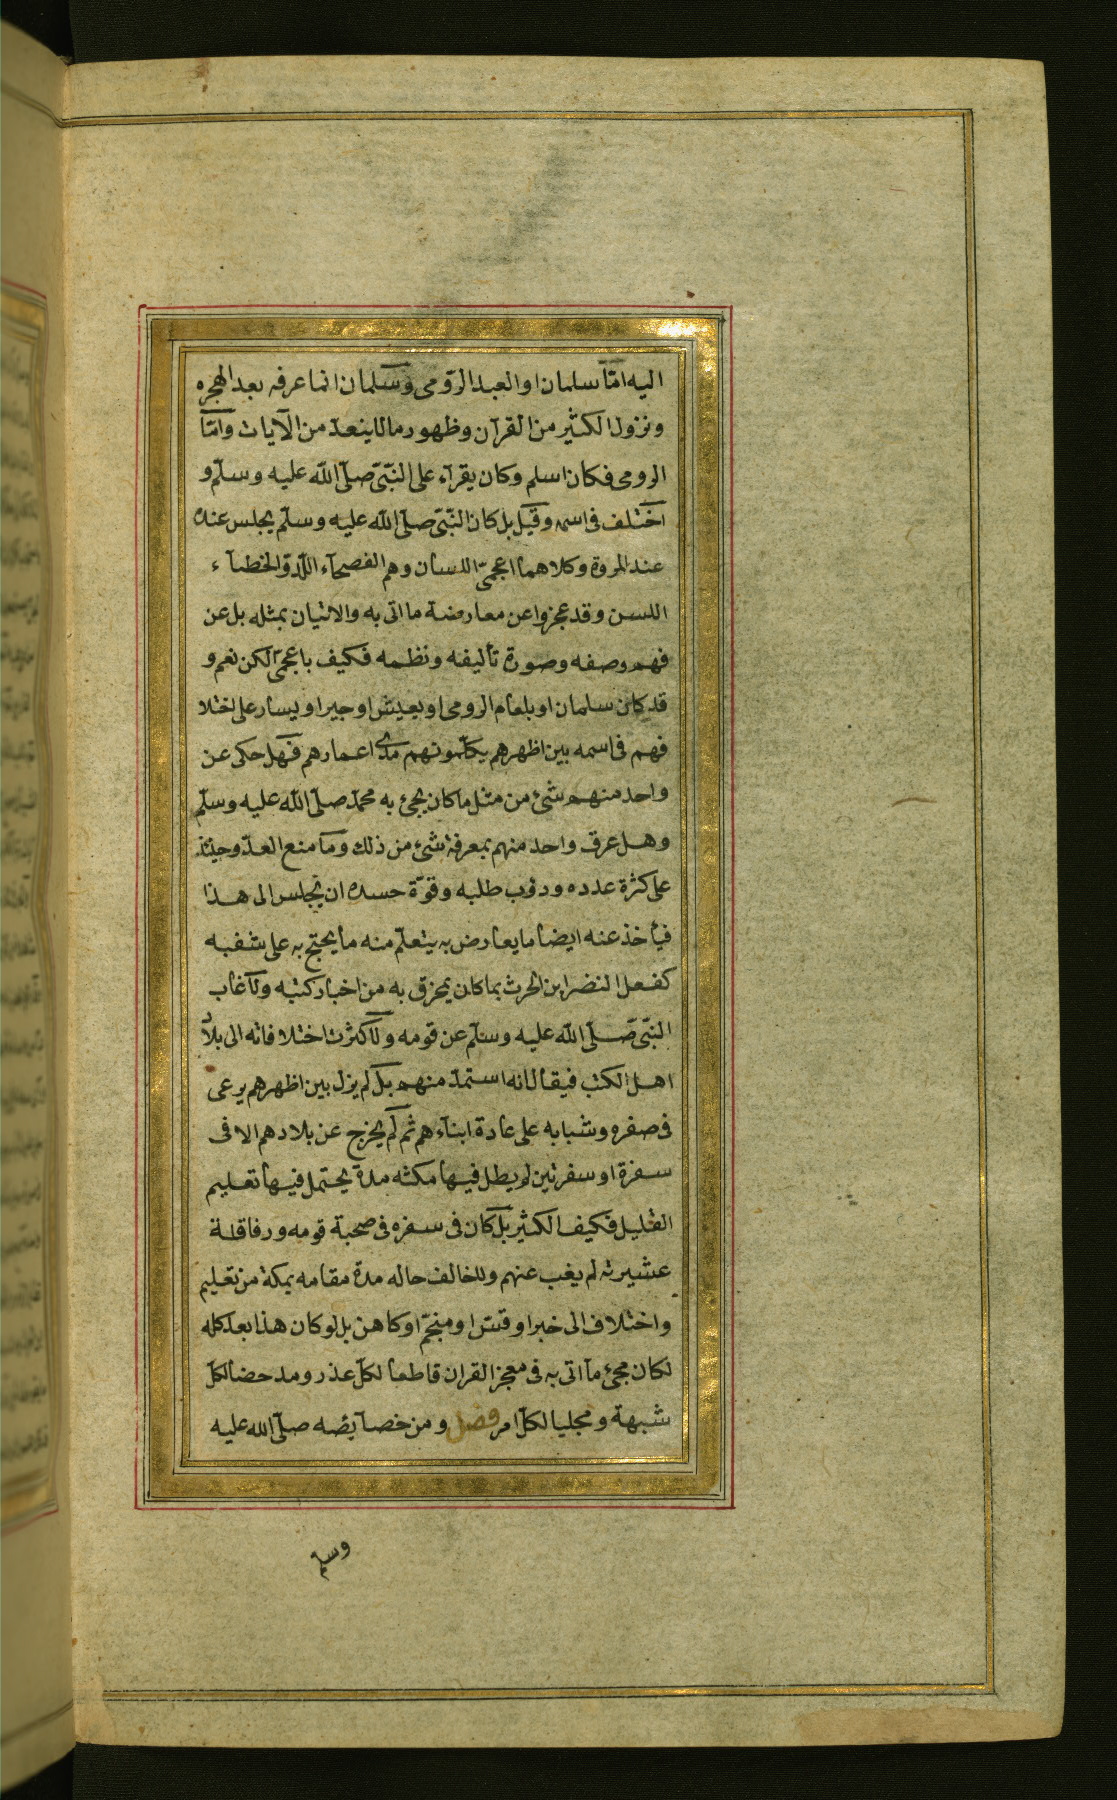 اليه امّا سلمان او العبد الرّومى وسلمان انما عرفه بعد الهجره
ونزول الكثير من القرآن وظهور ما لا ينعدّ من الآيات وامّا
الرومى فكان اسلم وكان يقرآء على النّبىّ صلّى اللّه عليه وسلّم و
اختلف فى اسمه وقيل بل كان النّبىّ صلّى اللّه عليه وسلّم يجلس عنده
عند المروة وكلاهما اعجمىّ اللسان وهم الفصحآء اللّدّ والخطبآء
اللسن وقد عجزوا عن معارضة ما اتى به والاتيان بمثله بل عن
فهم وصفه وصورة تأليفه ونظمه فكيف باعجمىّ الكن نعم و
قد كان سلمان او بلعام الرومى او يعيش او جبر او يسار على اختلا
فهم فى اسمه بين اظهرهم يكلّمونهم مدى اعمارهم فهل حكى عن
واحد منهم شئ من مثل ما كان يجئ به محمّد صلّى اللّه عليه وسلّم
وهل عرف واحد منهم بمعرفة شئ من ذلك وما منع العدوّ حينئذ
على كثرة عدده ودؤب طلبه وقوّة حسده ان يجلس الى هذا
فيأخذ عنه ايضا ما يعارض به يتعلّم منه ما يحتج به على شغبه
كفعل النضر ابن الحرث بما كان يمخرق به من اخبار كتبه ولا غاب
النبّى صّلّى اللّه عليه وسلم عن قومه ولا كثرت اختلافاته الى بلاد
اهل الكتب فيقال انه استمدّ منهم بل لم يزل بين اظهرهم يرعى
فى صغره وشبابه على عادة ابنآءهم ثم لم يخرج عن بلادهم الا فى
سفرة او سفرتين لم يطل فيها مكثه مدة يحتمل فيها تعليم
القليل فكيف الكثير بل كان فى سفره فى صحبة قومه ورفاقة
عشيرته لم يغب عنهم ولا خالف حاله مدة مقامه بمكة من تعليم
واختلاف الى خبر او قس او منجّم او كاهن بل لو كان هذا بعد كله
لكان مجئ ما اتى به فى معجز القران قاطعا لكلّ عذر ومدحضا لكلّ
شبهة ومجليا لكلّ امر فصل ومن خصآيصه صلّى اللّه عليه
وسلم